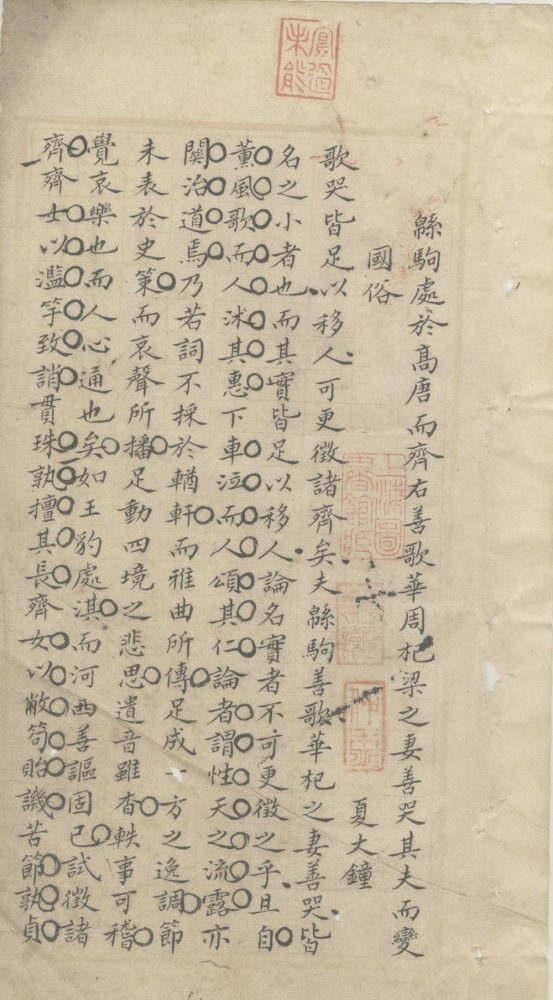 寡過未能
緜駒處於高唐而齊右善歌華周杞梁之妻善哭其夫而變
國俗 夏大鐘
歌哭皆足以移人可更徵諸齊矣夫緜駒善歌華杞之妻善哭皆
名之小者也而其實皆足以移人論名實者不可更徵之乎且自
薰風歌而人沐其惠下車泣而人頌其仁論者謂性天之流露亦
關治道焉乃若詞不採於輶軒而雅曲所傳足成一方之逸調節
未表於史策而哀聲所播足動四境之悲思遺音雖杳軼事可稽
覺哀樂也而人心通也矣如王豹處淇而河西善謳固已試徵諸
齊齊士以濫竽致誚貫珠孰擅其長齊女以敝笱貽譏苦節孰貞